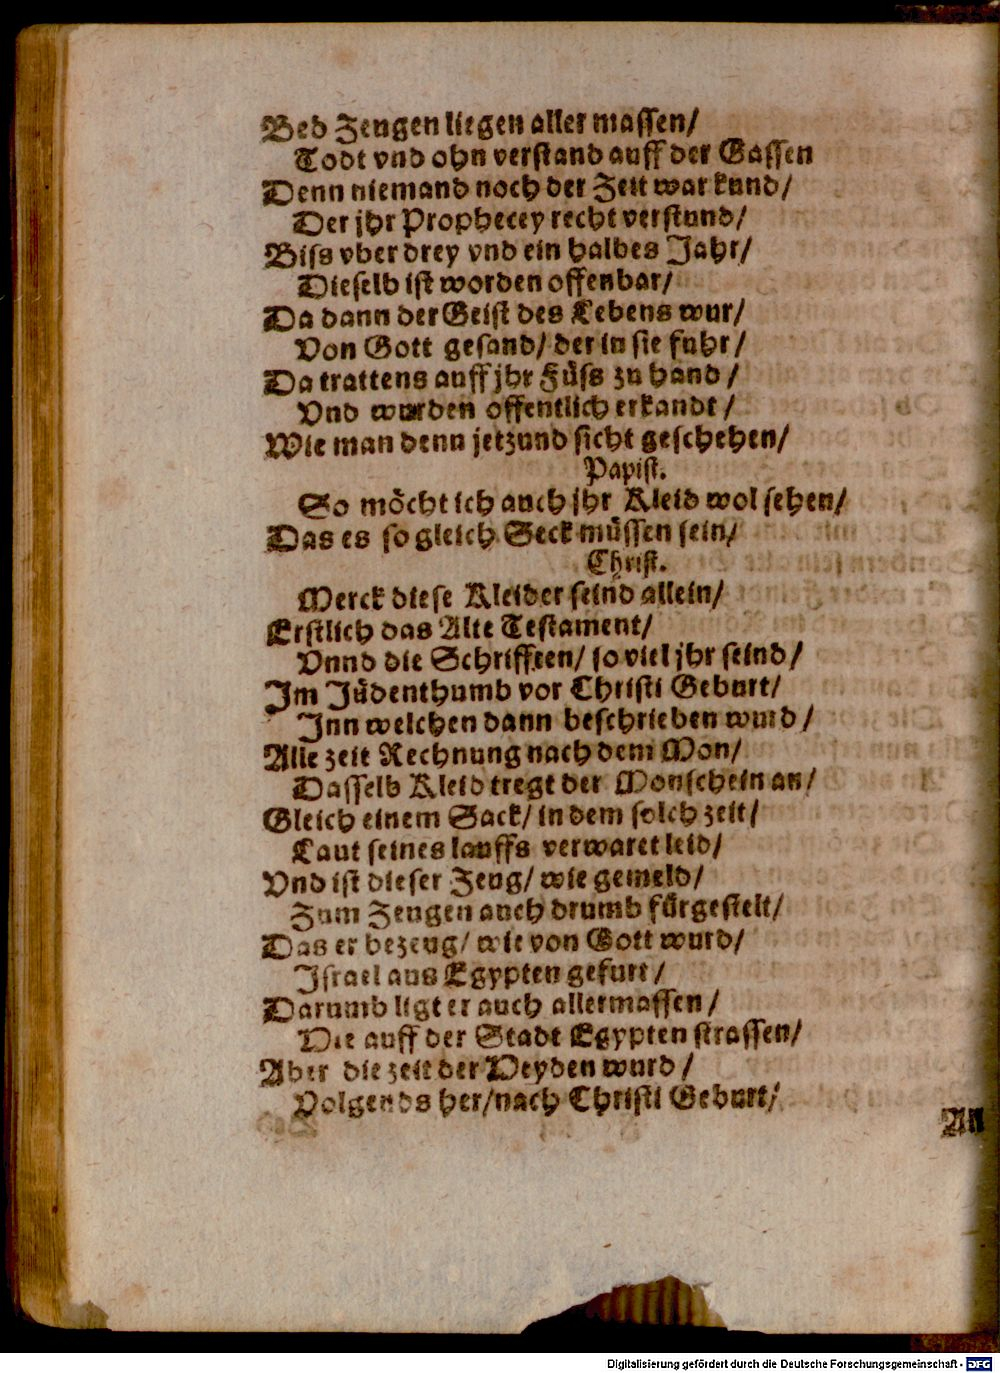 Bed Zeugen liegen aller massen/
Todt vnd ohn verstand auff der Gassen
Denn niemand noch der Zeit war kund/
Der jhr Prophecey recht verstund/
Biss vber drey vnd ein halbes Jahr/
Dieselb ist worden offenbar/
Da dann der Geist des Lebens wur/
Von Gott gesand/ der in sie fuhr/
Da trattens auff jhr Füss zu hand/
Vnd wurden offentlich erkandt/
Wie man denn jetzund sicht geschehen/
Papist.
So möcht ich auch jhr Kleid wol sehen/
Das es so gleich Seck müssen sein/
Christ.
Merck diese Kleider seind allein/
Erstlich das Alte Testament/
Vnnd die Schrifften/ so viel jhr seind/
Im Jüdenthumb vor Christi Geburt/
Inn welchen dann beschrieben wurd/
Alle zeit Rechnung nach dem Mon/
Dasselb Kleid tregt der Monschein an/
Gleich einem Sack/ in dem solch zeit/
Laut seines lauffs verwaret leid/
Vnd ist dieser Zeug/ wie gemeld/
Zum Zeugen auch drumb fürgestelt/
Das er bezeug/ wie von Gott wurd/
Israel aus Egypten gefurt/
Darumb ligt er auch allermassen/
Die auff der Stadt Egypten strassen/
Aber die zeit der Heyden wurd/
Volgends her/nach Christi Geburt/
An
Digitalisierung gefördert durch die Deutsche Forschungsgemeinschaft - DFG